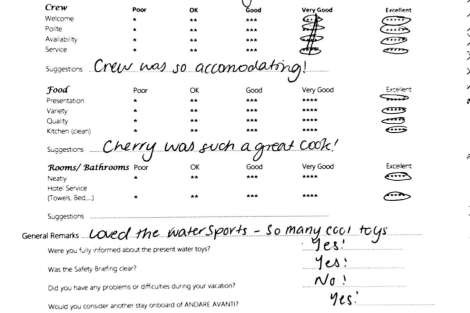 Crew Poor OK Good Very Good Excellent
Welcome * ** *** **** *****
Polite * ** *** **** *****
Availability * ** *** **** *****
Service * ** *** **** *****
Suggestions Crew was so accomodating!
Food Poor OK Good Very Good Excellent
Presentation * ** *** **** *****
Variety * ** *** **** *****
Quality * ** *** **** *****
Kitchen (clean) * ** *** **** *****
Suggestions Cherry was such a great cook!
Rooms/Bathrooms Poor OK Good Very Good Excellent
Neaty * ** *** **** *****
Hotel Service
(Towels, Bed,...) * ** *** **** *****
Suggestions
General Remarks Loved the watersports - so many cool toys
Were you fully informed about the present water toys? Yes!
Was the Safety Briefing clear? Yes!
Did you have any problems or difficulties during your vacation? No!
Would you consider another stay onboard of ANDARE AVANTI? Yes!